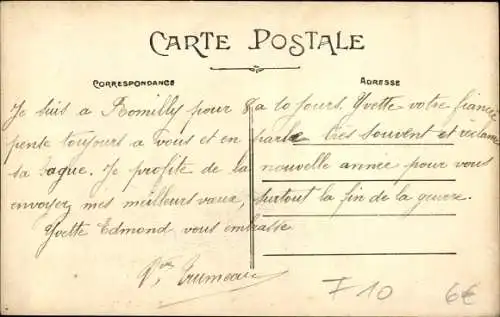 CARTE POSTALE
CORRESPONDANCE
ADRESSE
Je suis a Romilly pour 8 a 10 jours. Yvette votre fiancée
pense toujours a vous et en parle très souvent et réclame
sa bague. Je profite de la nouvelle année pour vous
envoyez mes meilleurs vœux, surtout la fin de la guerre.
Yvette Edmond vous embrasse
Trumeau
F 10
6€